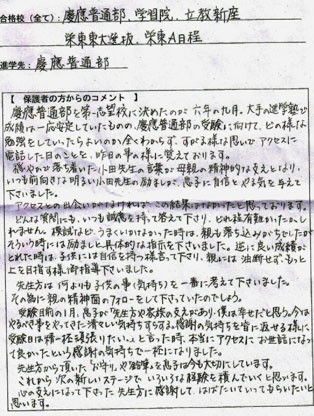 合格校(全て): 慶應普通部、学習院、立教新座
栄東東大選抜、栄東A日程
進学先: 慶應普通部
【 保護者の方からのコメント 】
慶應普通部を第一志望校に決めたのが六年の九月。大手の進学塾で
成績は一応安定していたものの、慶應普通部の受験に向けて、どの様な
勉強をしていたらよいのか全くわからず、すがる様な思いでアクセスに
電話した日のことを、昨日の事の様に覚えております。
穏やかで落ち着いた小田先生の言葉が母親の精神的な支えとなり、
いつも前向きな明るい小田先生の励ましが、息子に自信とやる気を与えて
下さいました。
アクセスとの出会いがなければ、この結果はなかったと思っております。
どんな質問にも、いつも誠意を持って答えて下さり、どれ程有難かったかし
れません。模試などで、うまくいかなかった時は、親も落ち込みがちでしたが
そういう時には励ましと具体的な指示を下さいました。逆に良い成績が
とれた時は、子供には自信を持つ様言って下さり、親には油断せず、もっと
上を目指す様、御指導下さいました。
先生方は何よりも子供の事(気持ち)を一番に考えて下さいました。
その為に親の精神面のフォローをして下さっていたのでしょう。
受験目前の1月、息子が「先生方や家族の支えがあり、僕は幸せだと思う。今は
やるべき事をやってきた清々しい気持ちすらする。感謝の気持ちを皆に返せる様に
受験日は精一杯頑張りたい。」と言った時、本当にアクセスにお世話になっ
て良かったという感謝の気持ちで一杯になりました。
先生方から頂いた「お守り」や「激励」を息子は今も大切にしています。
これから次の新しいステージで、いろいろな経験を積んでいくと思います。
心の支えになって下さった先生方に感謝して、はばたいていってもらいたいと
思います。